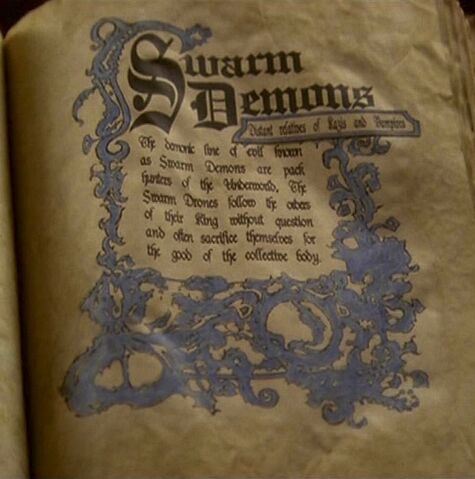 Swarm
Demons
Distant relatives of Kazis and Vampires
The demonic line of evil known
as Swarm Demons are pack
hunters of the Underworld, The
Swarm Drones follow the orders
of their King without question
and often sacrifice themselves for
the good of the collective body.